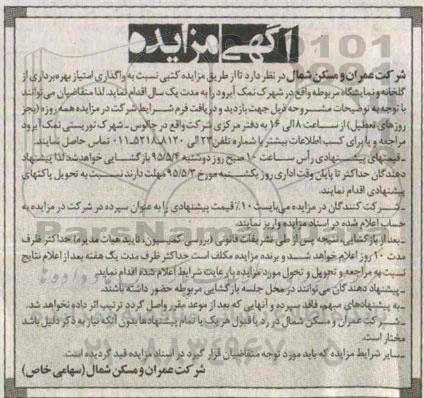 آگهی مزایده
شرکت عمران و مسکن شمال در نظر دارد تا از طریق مزایده کتبی نسبت به واگذاری امتیاز بهره‌برداری از
گلخانه و نمایشگاه مربوطه واقع در شهرک نمک آبرود را به مدت یک سال اقدام نماید. لذا متقاضیان می‌توانند
با توجه به توضیحات مشروحه ذیل جهت بازدید و دریافت فرم شرایط شرکت در مزایده همه روزه (بجز
روزهای تعطیل) از ساعت ۸ الی ۱۶ به دفتر مرکزی شرکت واقع در چالوس ـ شهرک توریستی نمک آبرود
مراجعه و یا برای کسب اطلاعات بیشتر با شماره تلفن ۲۳ الی ۰۱۱-۵۲۱۸۸۱۲۰ تماس حاصل نمایند.
ـ قیمتهای پیشنهادی رأس ساعت ۱۰ صبح روز دوشنبه ۹۵/۵/۴ بازگشایی خواهد شد لذا پیشنهاد
دهندگان حداکثر تا پایان وقت اداری روز یکشنبه مورخ ۹۵/۵/۳ مهلت دارند نسبت به تحویل پاکتهای
پیشنهادی اقدام نمایند.
ـ شرکت کنندگان در مزایده می‌بایست ۱۰٪ قیمت پیشنهادی را به عنوان سپرده در شرکت در مزایده به
حساب اعلام شده در اسناد مزایده واریز نمایند.
ـ بعد از بازگشایی، نتیجه پس از طی تشریفات قانونی (بررسی کمیسیون، تایید هیات مدیره) حداکثر ظرف
مدت ۱۰ روز اعلام خواهد شد و برنده مزایده مکلف است حداکثر ظرف مدت یک هفته بعد از اعلام نتایج
نسبت به مراجعه و تحویل و تحول مورد مزایده با رعایت شرایط اعلام شده اقدام نماید.
ـ پیشنهاد دهندگان می‌توانند در محل جلسه بازگشایی مربوطه حضور داشته باشند.
ـ به پیشنهادهای مبهم، فاقد سپرده و آنهایی که بعد از موعد مقرر واصل گردد ترتیب اثر داده نخواهد شد.
ـ شرکت عمران و مسکن شمال در رد یا قبول هر یک یا تمام پیشنهادها بدون آنکه نیاز به ذکر دلیل باشد
مختار است.
ـ سایر شرایط مزایده که باید مورد توجه متقاضیان قرار گیرد در اسناد مزایده قید گردیده است.
شرکت عمران و مسکن شمال (سهامی خاص)
ParsNamadData
۰۲۱-۸۸۳۴۹۶۷۰-۵